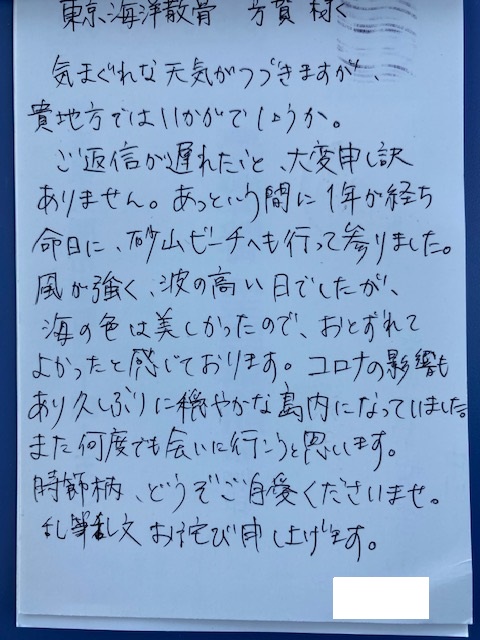 東京海洋散骨 方賀 様
気まぐれな天気がつづきますが、
貴地方ではいかがでしょうか。
ご返信が遅れたこと、大変申し訳
ありません。あっという間に1年が経ち
命日に、砂山ビーチへも行って参りました。
風が強く、波の高い日でしたが、
海の色は美しかったので、おとずれて
よかったと感じております。コロナの影響も
あり久しぶりに穏やかな島内になっていました。
また何度でも会いに行こうと思います。
時節柄、どうぞご自愛くださいませ。
乱筆乱文お詫び申し上げます。